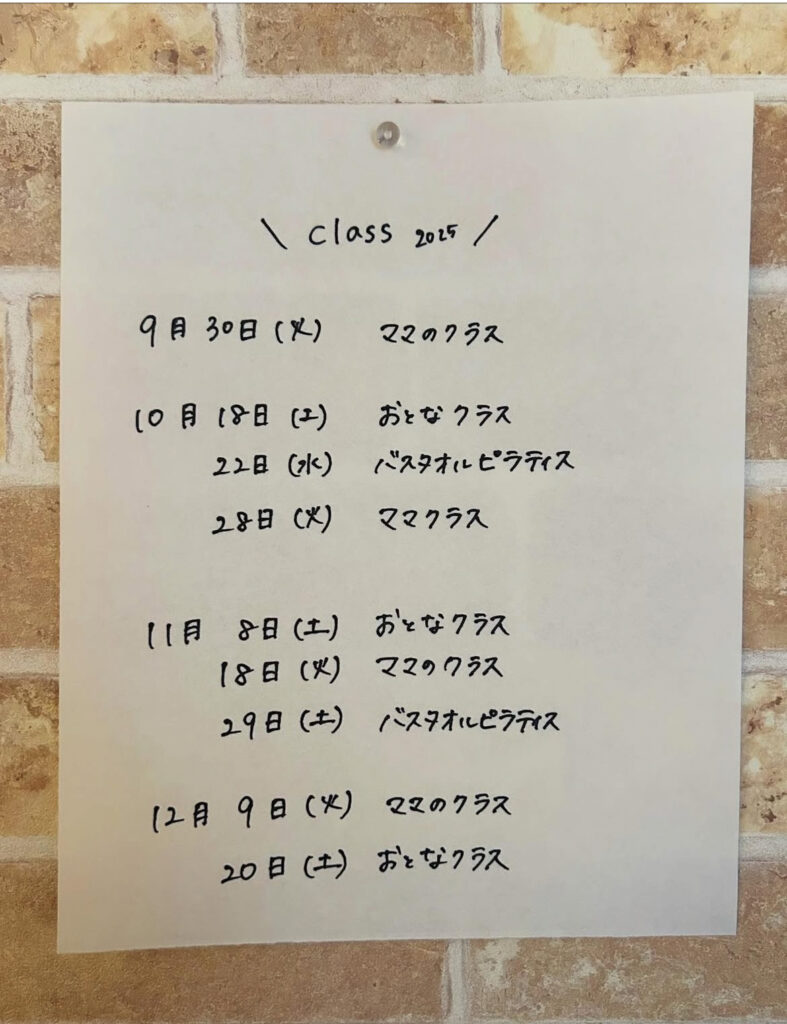 \ class 2025 /
9月30日(火) ママのクラス
10月18日(土) おとなクラス
22日(水) バスタオルピラティス
28日(火) ママクラス
11月 8日(土) おとなクラス
18日(火) ママのクラス
29日(土) バスタオルピラティス
12月 9日(火) ママのクラス
20日(土) おとなクラス